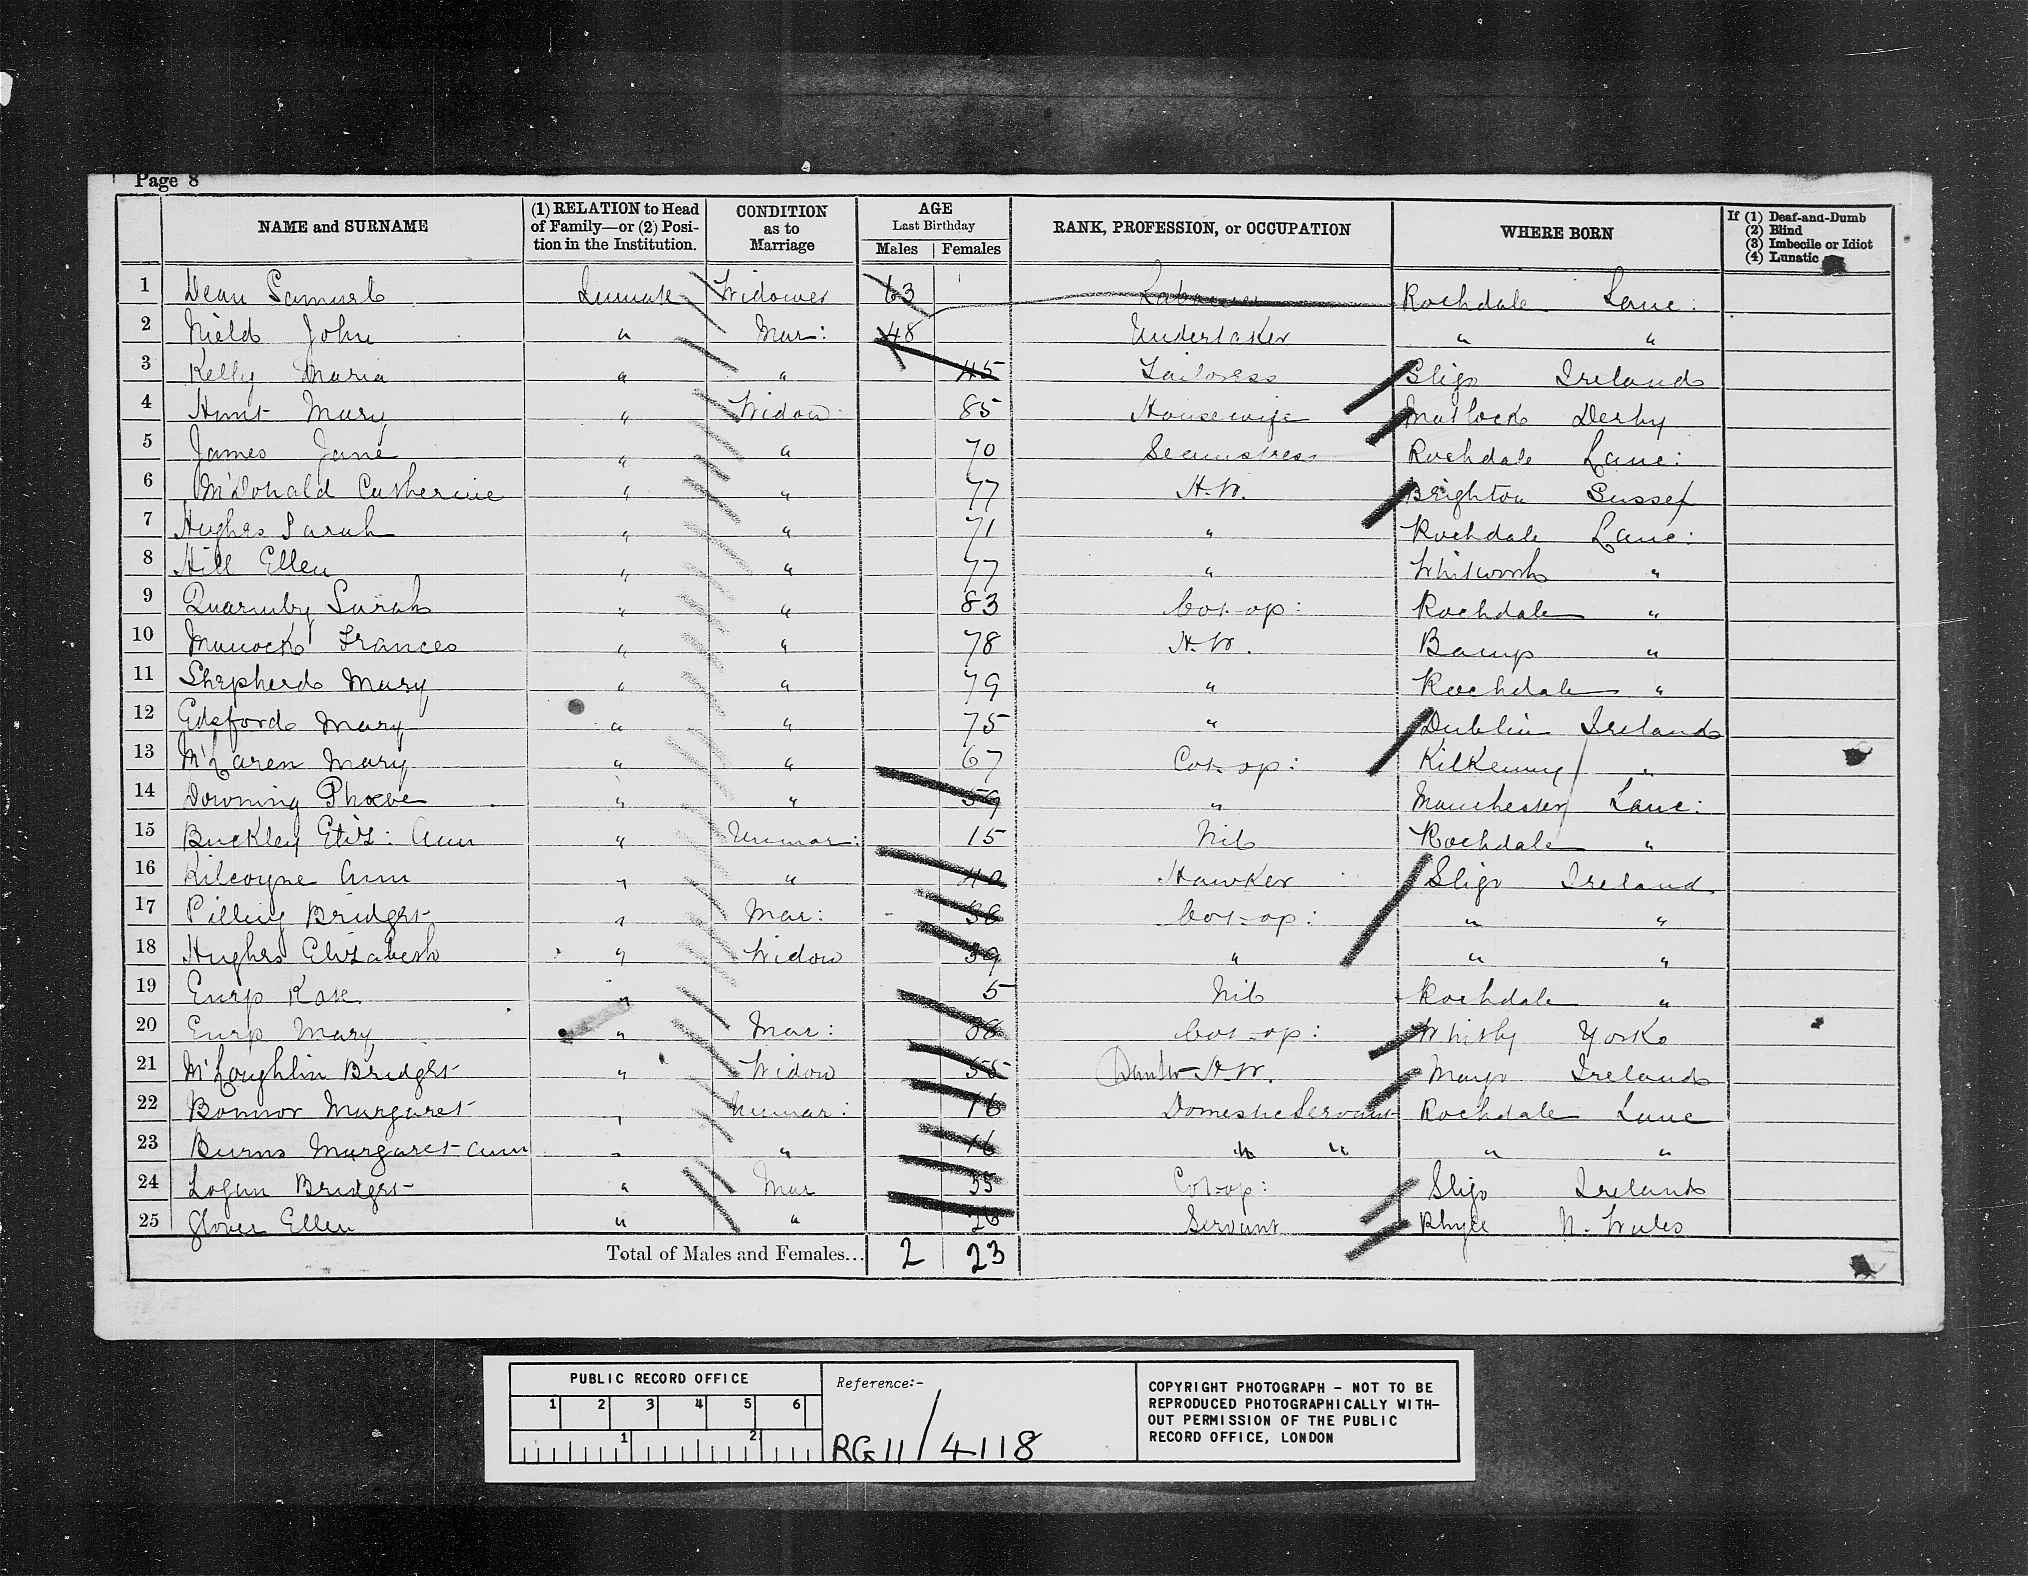 Page 8
NAME and SURNAME (1) RELATION to Head of Family—or (2) Position in the Institution. CONDITION as to Marriage AGE Last Birthday Males Females RANK, PROFESSION, or OCCUPATION WHERE BORN If (1) Deaf-and-Dumb (2) Blind (3) Imbecile or Idiot (4) Lunatic
1 Dean Samuel Inmate Widower 63 Labourer Rochdale Lanc:
2 Nield John " Mar: 48 Undertaker " "
3 Kelly Maria " " 45 Tailoress Sligo Ireland
4 Hunt Mary " Widow 85 Housewife Matlock Derby
5 James Jane " " 70 Seamstress Rochdale Lanc:
6 M'Donald Catherine " " 77 H.W. Brighton Sussex
7 Hughes Sarah " " 71 " Rochdale Lanc:
8 Hill Ellen " " 77 " Whitworth "
9 Quarmby Sarah " " 83 Cot-op: Rochdale "
10 Manock Frances " " 78 H.W. Bacup "
11 Shepherd Mary " " 79 " Rochdale "
12 Edsford Mary " " 75 " Dublin Ireland
13 M'Laren Mary " " 67 Cot-op: Kilkenny "
14 Downing Phoebe " " 59 " Manchester Lanc:
15 Buckley Eliz: Ann " Unmar: 15 Nil Rochdale "
16 Kilcoyne Ann " " 40 Hawker Sligo Ireland
17 Pilling Bridget " Mar: 36 Cot-op: " "
18 Hughes Elizabeth " Widow 39 " " "
19 Earp Kate " 5 Nil Rochdale "
20 Earp Mary " Mar: 38 Cot-op: Whitby York
21 M'Loughlin Bridget " Widow 55 H.W. Mayo Ireland
22 Bonnor Margaret " Unmar: 16 Domestic Servant Rochdale Lanc
23 Burns Margaret Ann " " 16 " " " "
24 Logan Bridget " Mar 35 Cot-op: Sligo Ireland
25 Glover Ellen " " 26 Servant Rhyle N. Wales
Total of Males and Females... 2 23
PUBLIC RECORD OFFICE
1 2 3 4 5 6
1 2
Reference:-
RG 11/4118
COPYRIGHT PHOTOGRAPH – NOT TO BE
REPRODUCED PHOTOGRAPHICALLY WITH-
OUT PERMISSION OF THE PUBLIC
RECORD OFFICE, LONDON